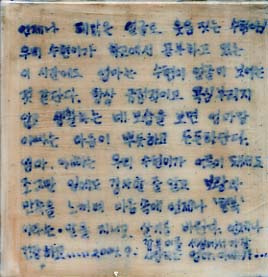 언제나 해맑은 얼굴로 웃음 짓는 수현아!
우리 수현이가 학교에서 공부하고 있는
이 시간에도 엄마는 수현이 얼굴이 보이는
것 같단다. 항상 긍정적이고 욕심부리지
않고 생활하는 네 모습을 보면 엄마랑
아빠는 마음이 뿌듯하고 든든하단다.
엄마, 아빠는 우리 수현이가 어른이 돼서도
조그만 일에도 감사할 줄 알고 보람과
만족을 느끼며 마음속에 언제나
지니고 살기를 바란다. 언제나
건강하고..... 2002. 9.